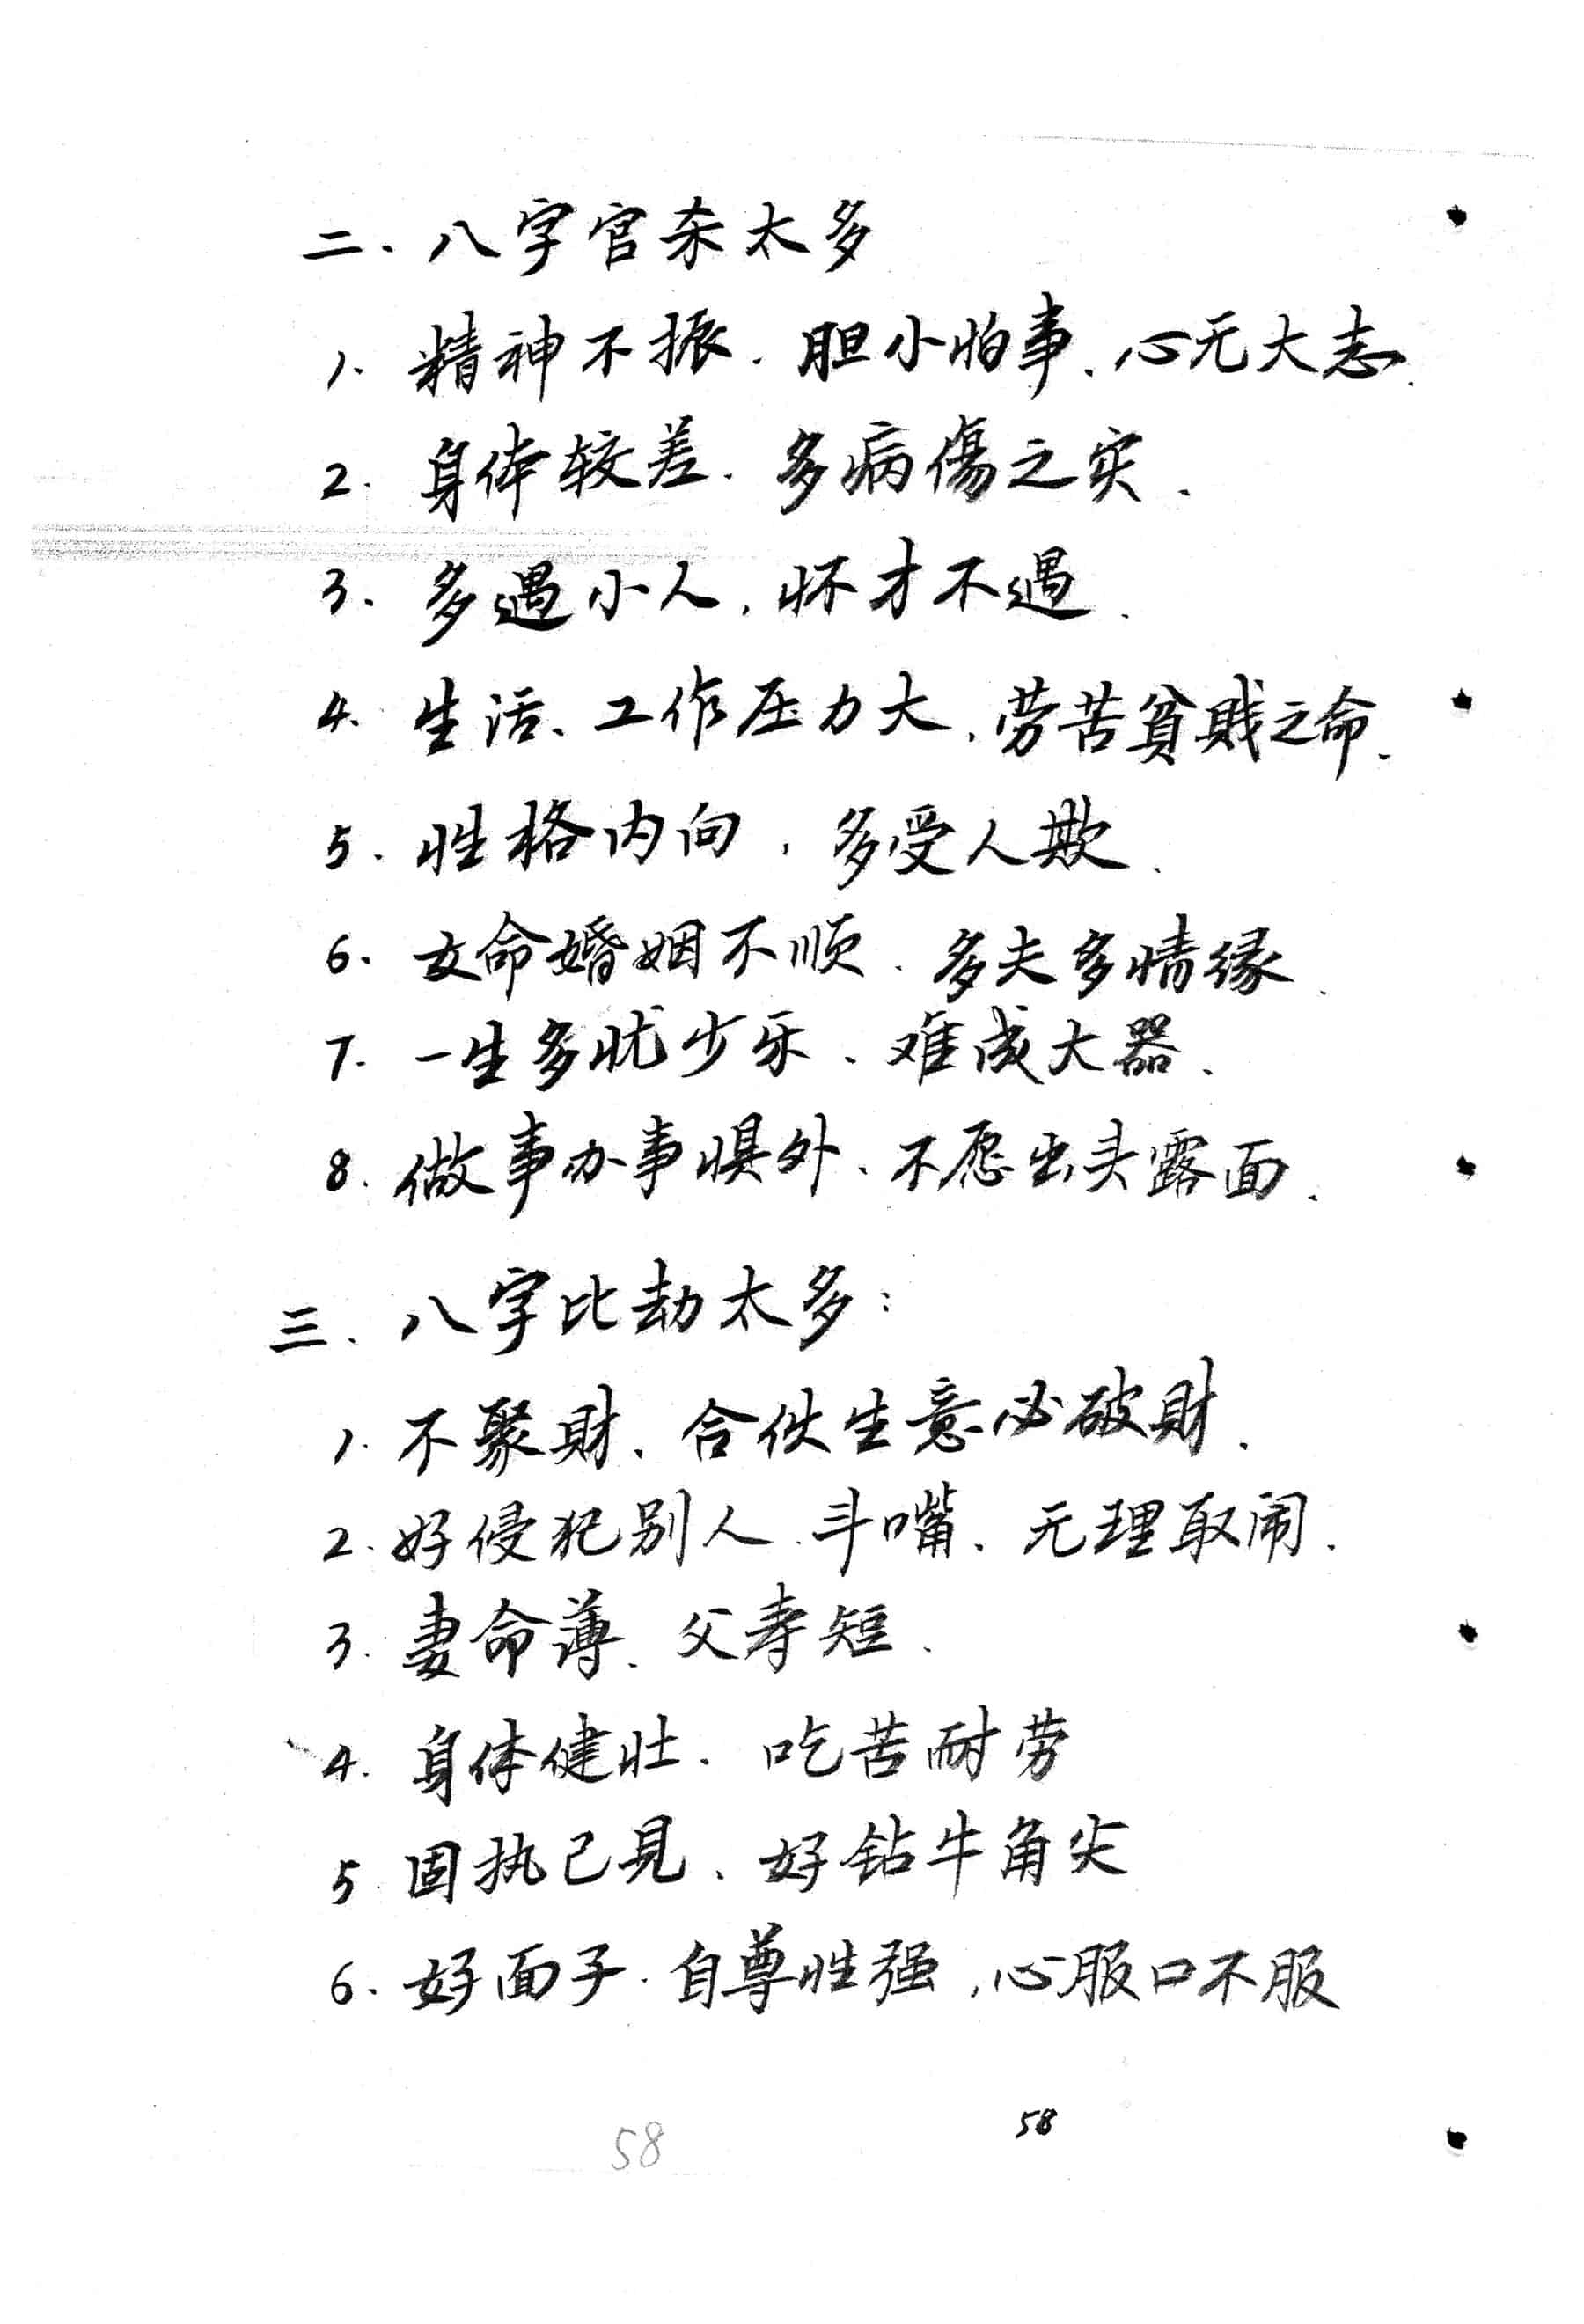 二、八字官杀太多
1. 精神不振.胆小怕事、心无大志.
2. 身体较差.多病傷之实.
3. 多遇小人,怀才不遇.
4. 生活、工作压力大,劳苦貧賎之命.
5. 性格内向,多受人欺.
6. 女命婚姻不顺.多夫多情缘.
7. 一生多忧少乐、难成大器.
8. 做事办事惧外、不愿出头露面.
三、八字比劫太多:
1. 不聚財、合伙生意必破財.
2. 好侵犯别人、斗嘴、无理取闹.
3. 妻命薄、父寿短.
4. 身体健壮.吃苦耐劳
5. 固执己見、好钻牛角尖
6. 好面子.自尊性强,心服口不服
58
58